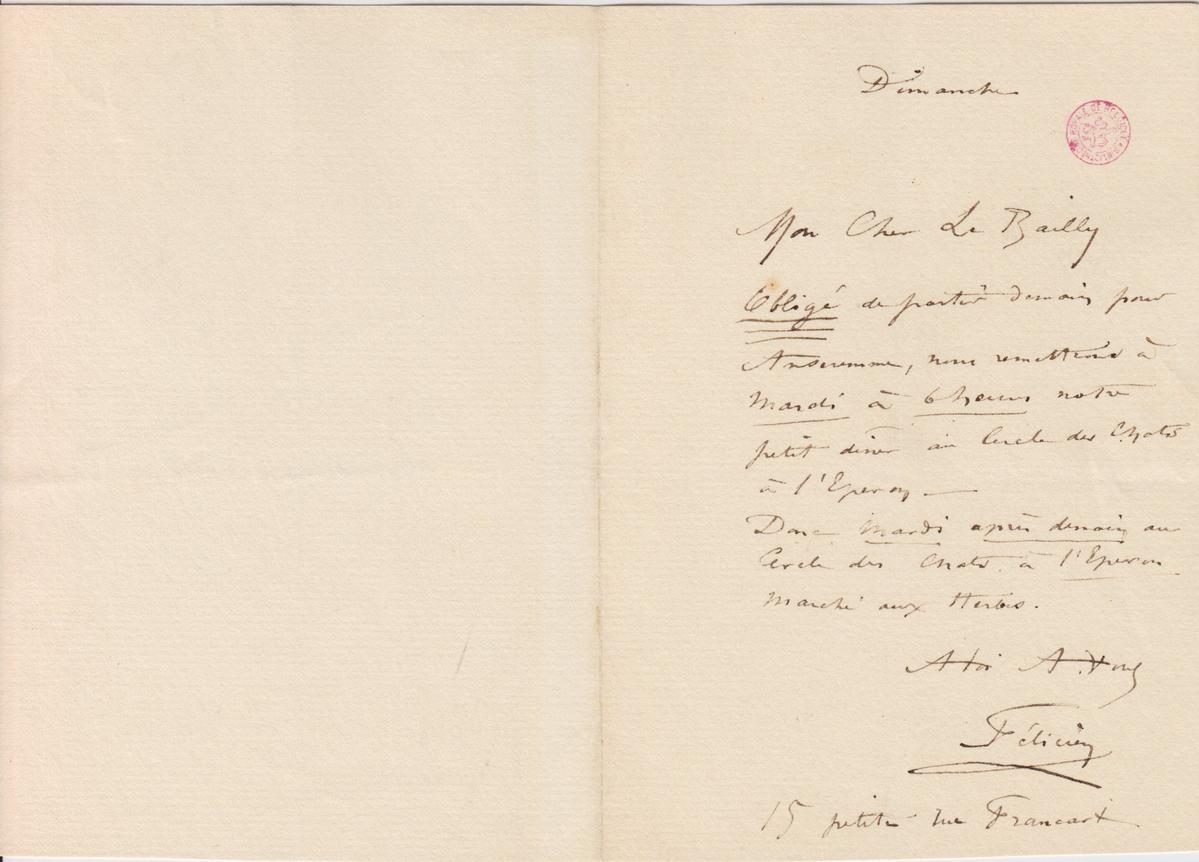 Dimanche
Mon Cher Le Bailly
Obligé de partir demain pour
Anseremme, nous remettrons à
Mardi à 6 heures notre
petit diner au Cercle des Chats
à l'Eperon —
Donc Mardi après demain au
Cercle des Chats. à l'Eperon
Marché aux Herbes.
A toi A. Vous
Félicien
15 petite rue Francart